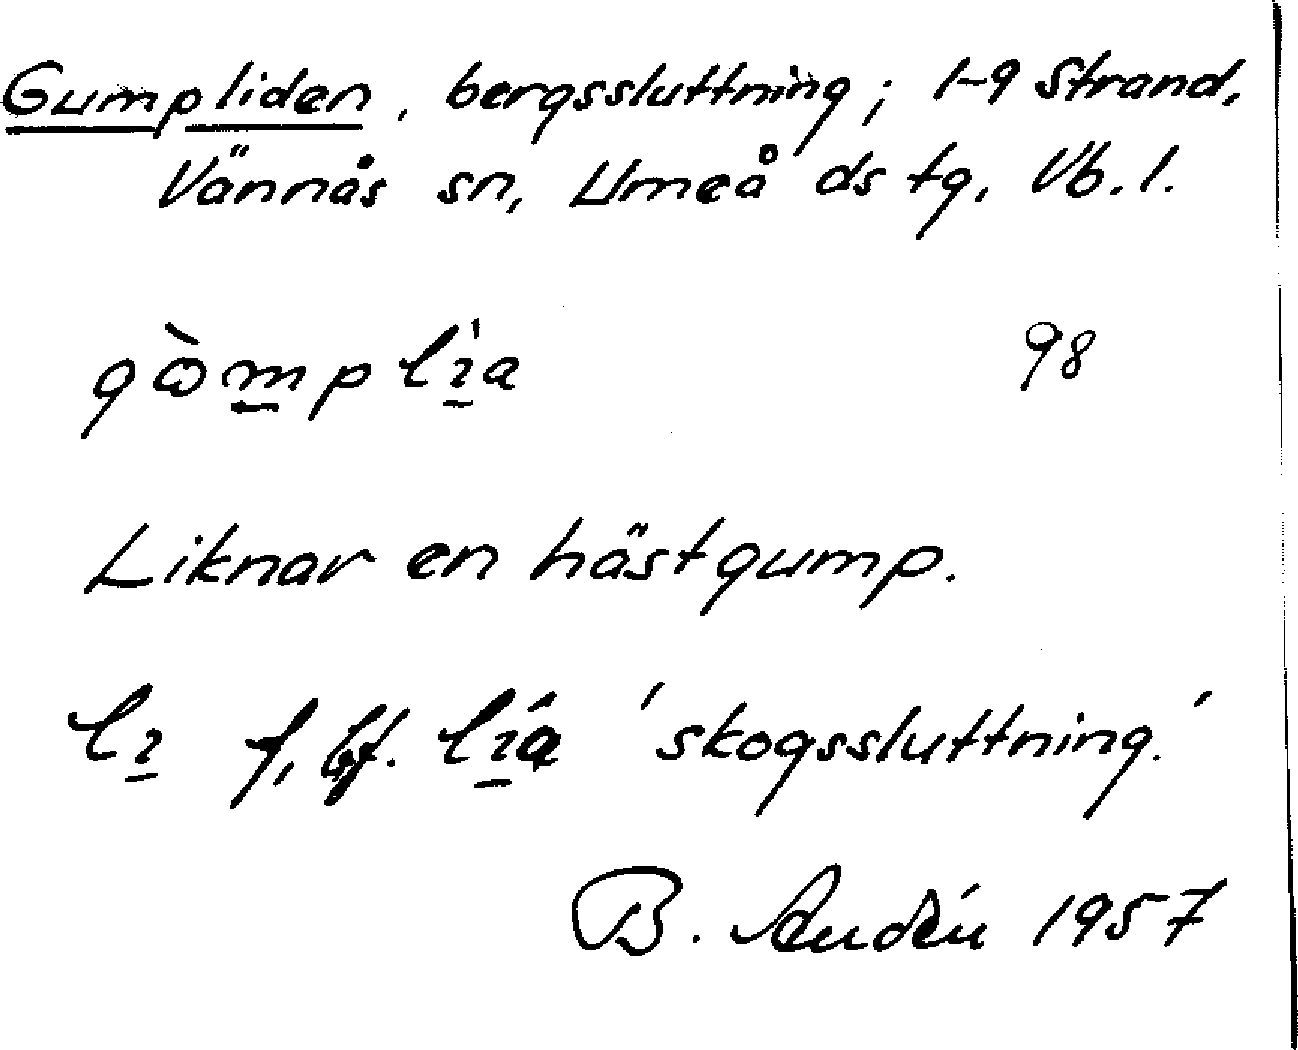 Gumpliden, bergssluttning; 1-9 Strand,
Vännås sn, Umeå ds tg, Vb. l.
gòmplia 98
Liknar en hästgump.
lı f, bf. lıa 'skogssluttning.'
B. Audén 1957